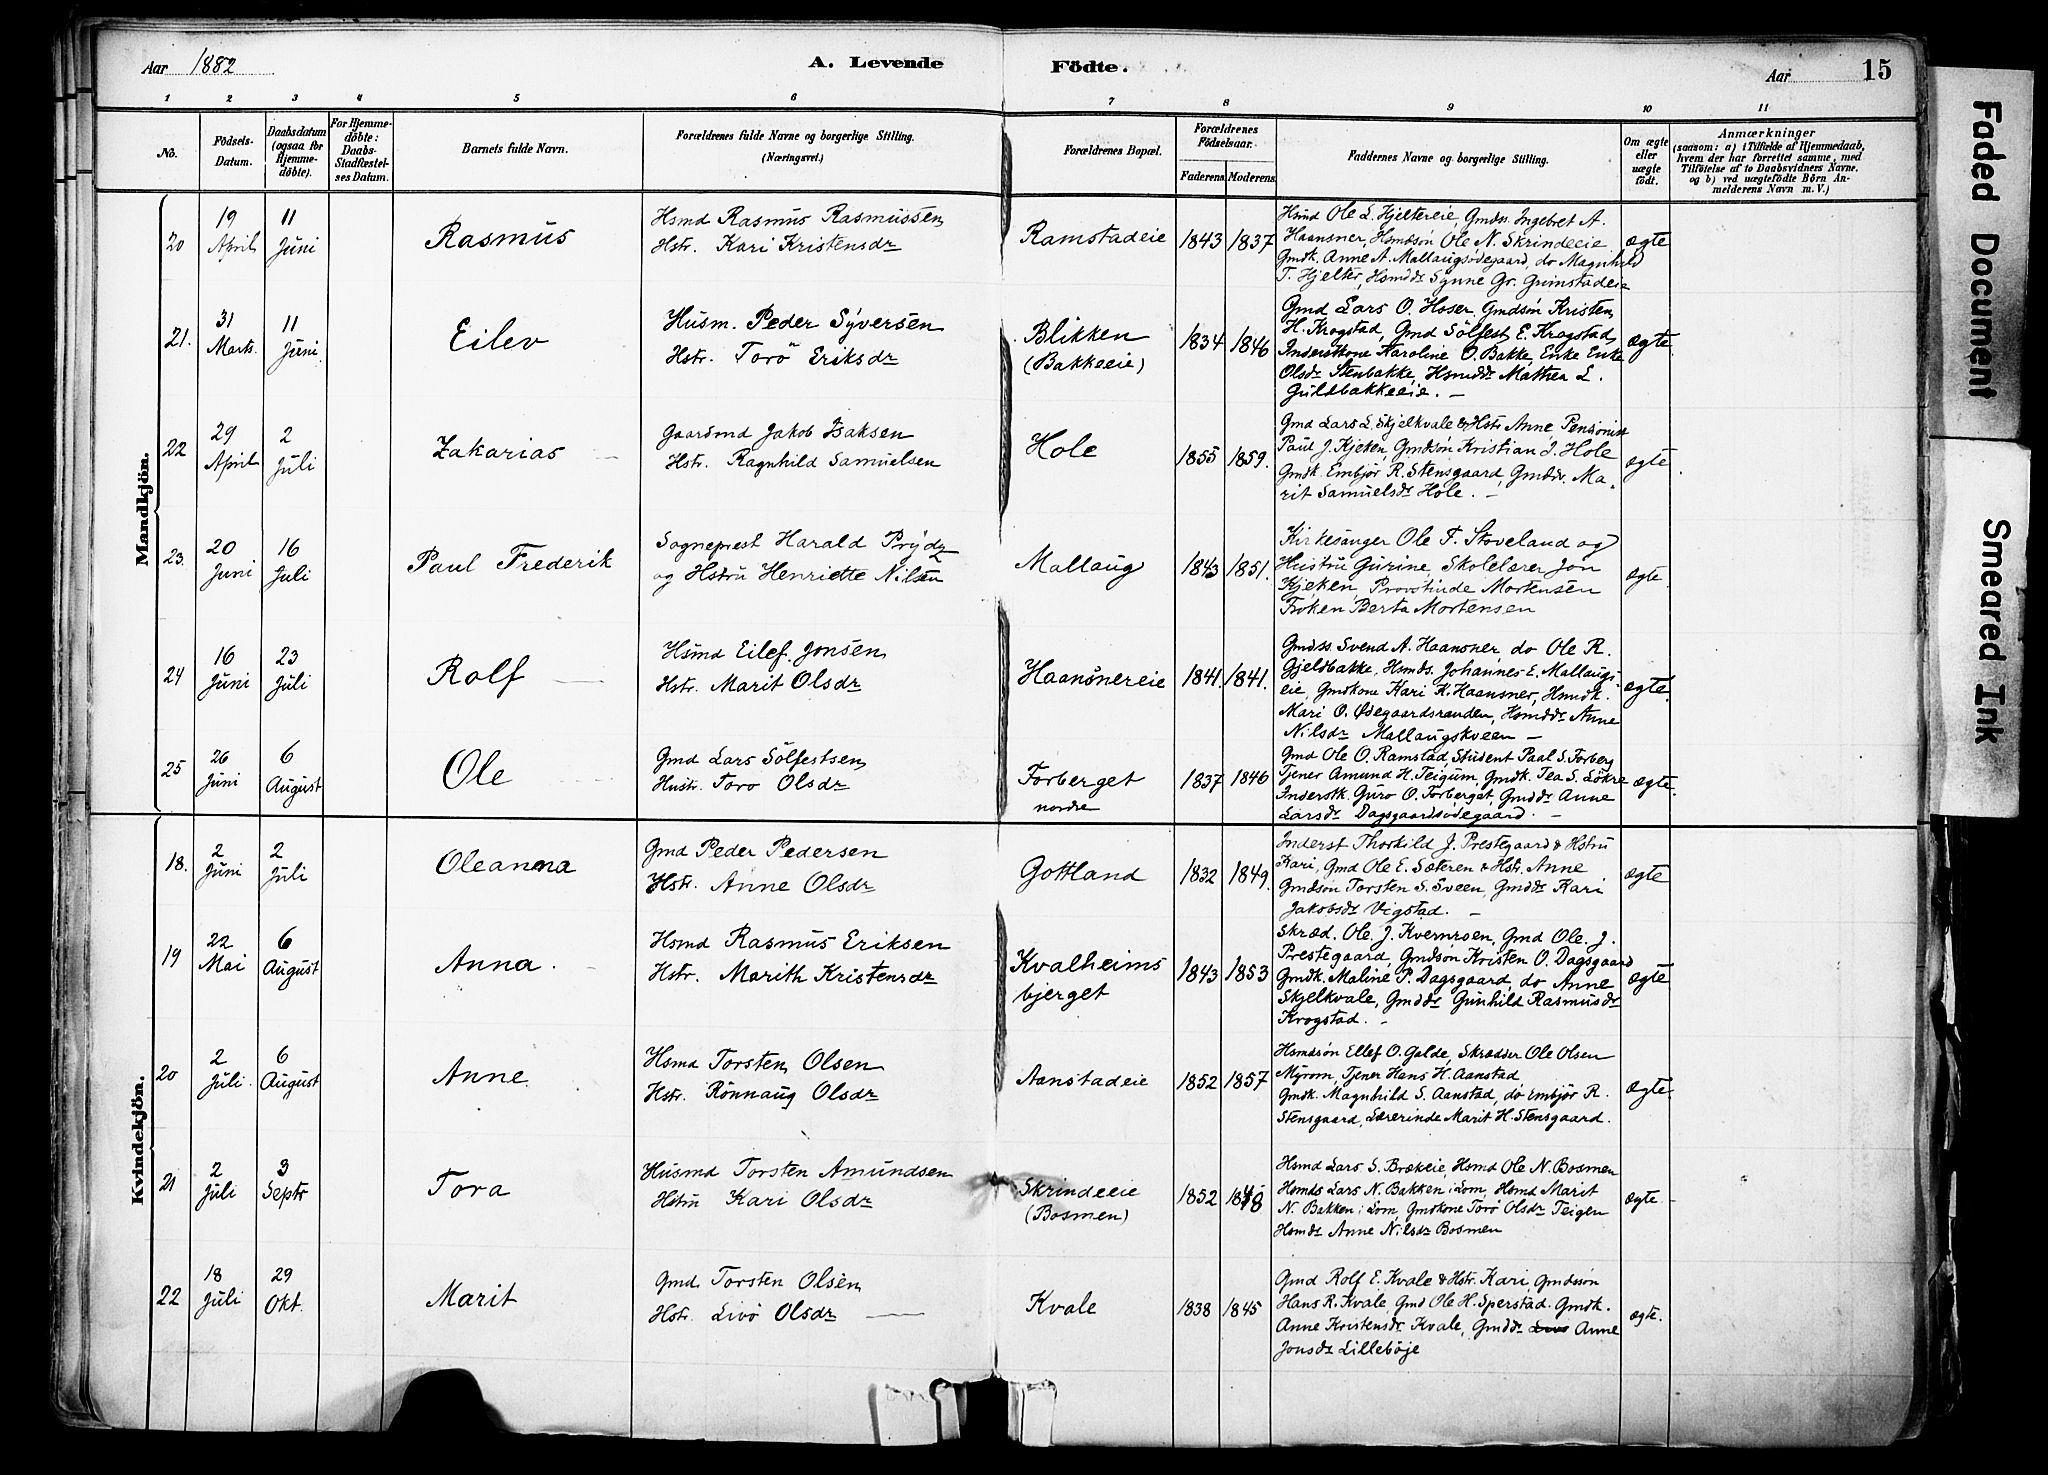 Aar 1882
A. Levende Födte.
Aar 15
1 2 3 4 5 6 7 8 9 10 11
No.
Födsels-
Datum.
Daabsdatum
(ogsaa for
Hjemme-
döbte).
For Hjemme-
döbte:
Daabs-
Stadfæstel-
ses Datum.
Barnets fulde Navn.
Forældrenes fulde Navne og borgerlige Stilling.
(Næringsvei.)
Forældrenes Bopæl.
Forældrenes
Födselsaar.
Faderens. Moderens.
Faddernes Navne og borgerlige Stilling.
Om ægte
eller
uægte
født.
Anmærkninger
(saasom: a) i Tilfælde af Hjemmedaab,
hvem der har forrettet samme, med
Tilföielse af to Daabsvidners Navne.
og b) ved uægtefödte Börn An-
melderens Navn m. V.)
Mandkjön.
20
19
April
11
Juni
Rasmus
Hsmd Rasmus Rasmussen
Hstr. Kari Kristensdr
Ramstadeie
1843 1837
Hsmd Ole L. Hjeltereie, Gmdss. Ingebret A.
Haansner, Hsmdsøn Ole N. Skrindeeie
Gmdk. Anne A. Mallaugsødegaard, do Magnhild
T. Hjelter, Hsmddr Synne Gr. Grimstadeie
ægte
21.
31
Marts.
11
Juni
Eilev
Husm. Peder Syversen
Hstr. Torö Eriksdr
Blikken
(Bakkeeie)
1834 1846
Gmd Lars O. Hoser, Gmdsøn Kristen
H. Krogstad, Gmd Sölfest E. Krogstad,
Inderstkone Karoline O. Bakke, Enke
Olsdr Stenbakke, Hsmddr Mathea L.
Guldbakkeeie. —
ægte.
22
29
April
2
Juli
Zakarias
Gaardmd Jakob Isaksen
Hstr. Ragnhild Samuelsen
Hole
1855 1859.
Gmd Lars L. Skjelkvale & Hstr Anne Pensionist
Paul J. Kjeken, Gmdsøn Kristian J. Hole
Gmdk. Embjør R. Stensgaard, Gmddr. Ma-
rit Samuelsdr Hole. —
ægte
23.
20
Juni
16
Juli
Paul Frederik
Sogneprest Harald Prydz
og Hstru Henriette Nilsen
Mallaug
1843 1851.
Kirkesanger Ole T. Stoveland og
Hustru Gurine, Skolelærer Jon
Kjeken, Provstinde Mortensen
Frøken Berta Mortensen
ægte.
24
16
Juni
23
Juli
Rolf
Hsmd Eilef Jonsen
Hstr. Marit Olsdr
Haansnereie
1841. 1841.
Gmdss. Svend A. Haansner, do Ole R.
Gjeldbakke, Hsmds. Johannes E. Mallaugs-
eie, Gmdkone Kari K. Haansner, Hsmdk.
Mari O. Ødegaardsranden, Hsmddr Anne
Nilsdr Mallaugskveen —
ægte.
25
26
Juni
6
August
Ole
Gmd Lars Sölfestsen
Hustr. Toro Olsdr
Forberget
nordre
1837 1846
Gmd Ole O. Ramstad, Student Paal S. Forberg
Tjener Amund H. Teigum, Gmdk. Tea S. Løkre
Inderstk. Guro O. Forberget, Gmddr Anne
Larsdr Dagsgaardsødegaard. —
ægte.
Kvindekjön.
18.
2
Juni
2
Juli
Oleanna
Gmd Peder Pedersen
Hstr. Anne Olsdr
Gottland
1832 1849.
Inderst Thorkild J. Prestegaard & Hstru
Kari, Gmd Ole E. Sæteren & Hstr. Anne
Gmdsøn Torsten S. Sveen, Gmddr Kari
Jakobsdr Vigstad. —
ægte
19
22
Mai
6
August
Anna.
Hsmd Rasmus Eriksen
Hstr. Marith Kristensdr
Kvalheims
bjerget
1843 1853
Skræd. Ole. J. Kvernroen, Gmd Ole. J.
Prestegaard, Gmdsøn Kristen O. Dagsgaard
Gmdk. Maline P. Dagsgaard, do Anne
Skjelkvale, Gmddr Gunhild Rasmusdr
Krogstad. —
ægte
20
2
Juli
6
August
Anne
Hsmd Torsten Olsen
Hstr. Rönnaug Olsdr
Aanstadeie
1852 1857
Hsmdsøn Ellef O. Galde, Skrædder Ole Olsen
Myrom, Tjener Hans H. Aanstad
Gmdk. Magnhild S. Aanstad, do Embjør R.
Stensgaard, Lærerinde Marit H. Stensgaard.
ægte.
21
2
Juli
3
Septr
Tora
Husmd Torsten Amundsen
Hstru Kari Olsdr
Skrindeeie
(Bosmen)
1852 1848
Hsmd Lars S. Brækeie, Hsmd Ole N. Bosmen
Hsmds Lars N. Bakken i Lom, Hsmd Marit
N. Bakken i Lom, Gmdkone Torö Olsdr Teigen
Hsmdr Anne Nilsdr Bosmen
ægte
22
18
Juli
29
Okt.
Marit
Gmd Torsten Olsen
Hstr. Livö Olsdr
Kvale
1838 1845
Gmd Rolf E. Kvale & Hstr. Kari, Gmdssøn
Hans R. Kvale, Gmd Ole H. Sperstad. Gmdk.
Anne Kristensdr Kvale, Gmddr Anne
Jonsdr Lillebøje
ægte.
Faded Document
Smeared Ink